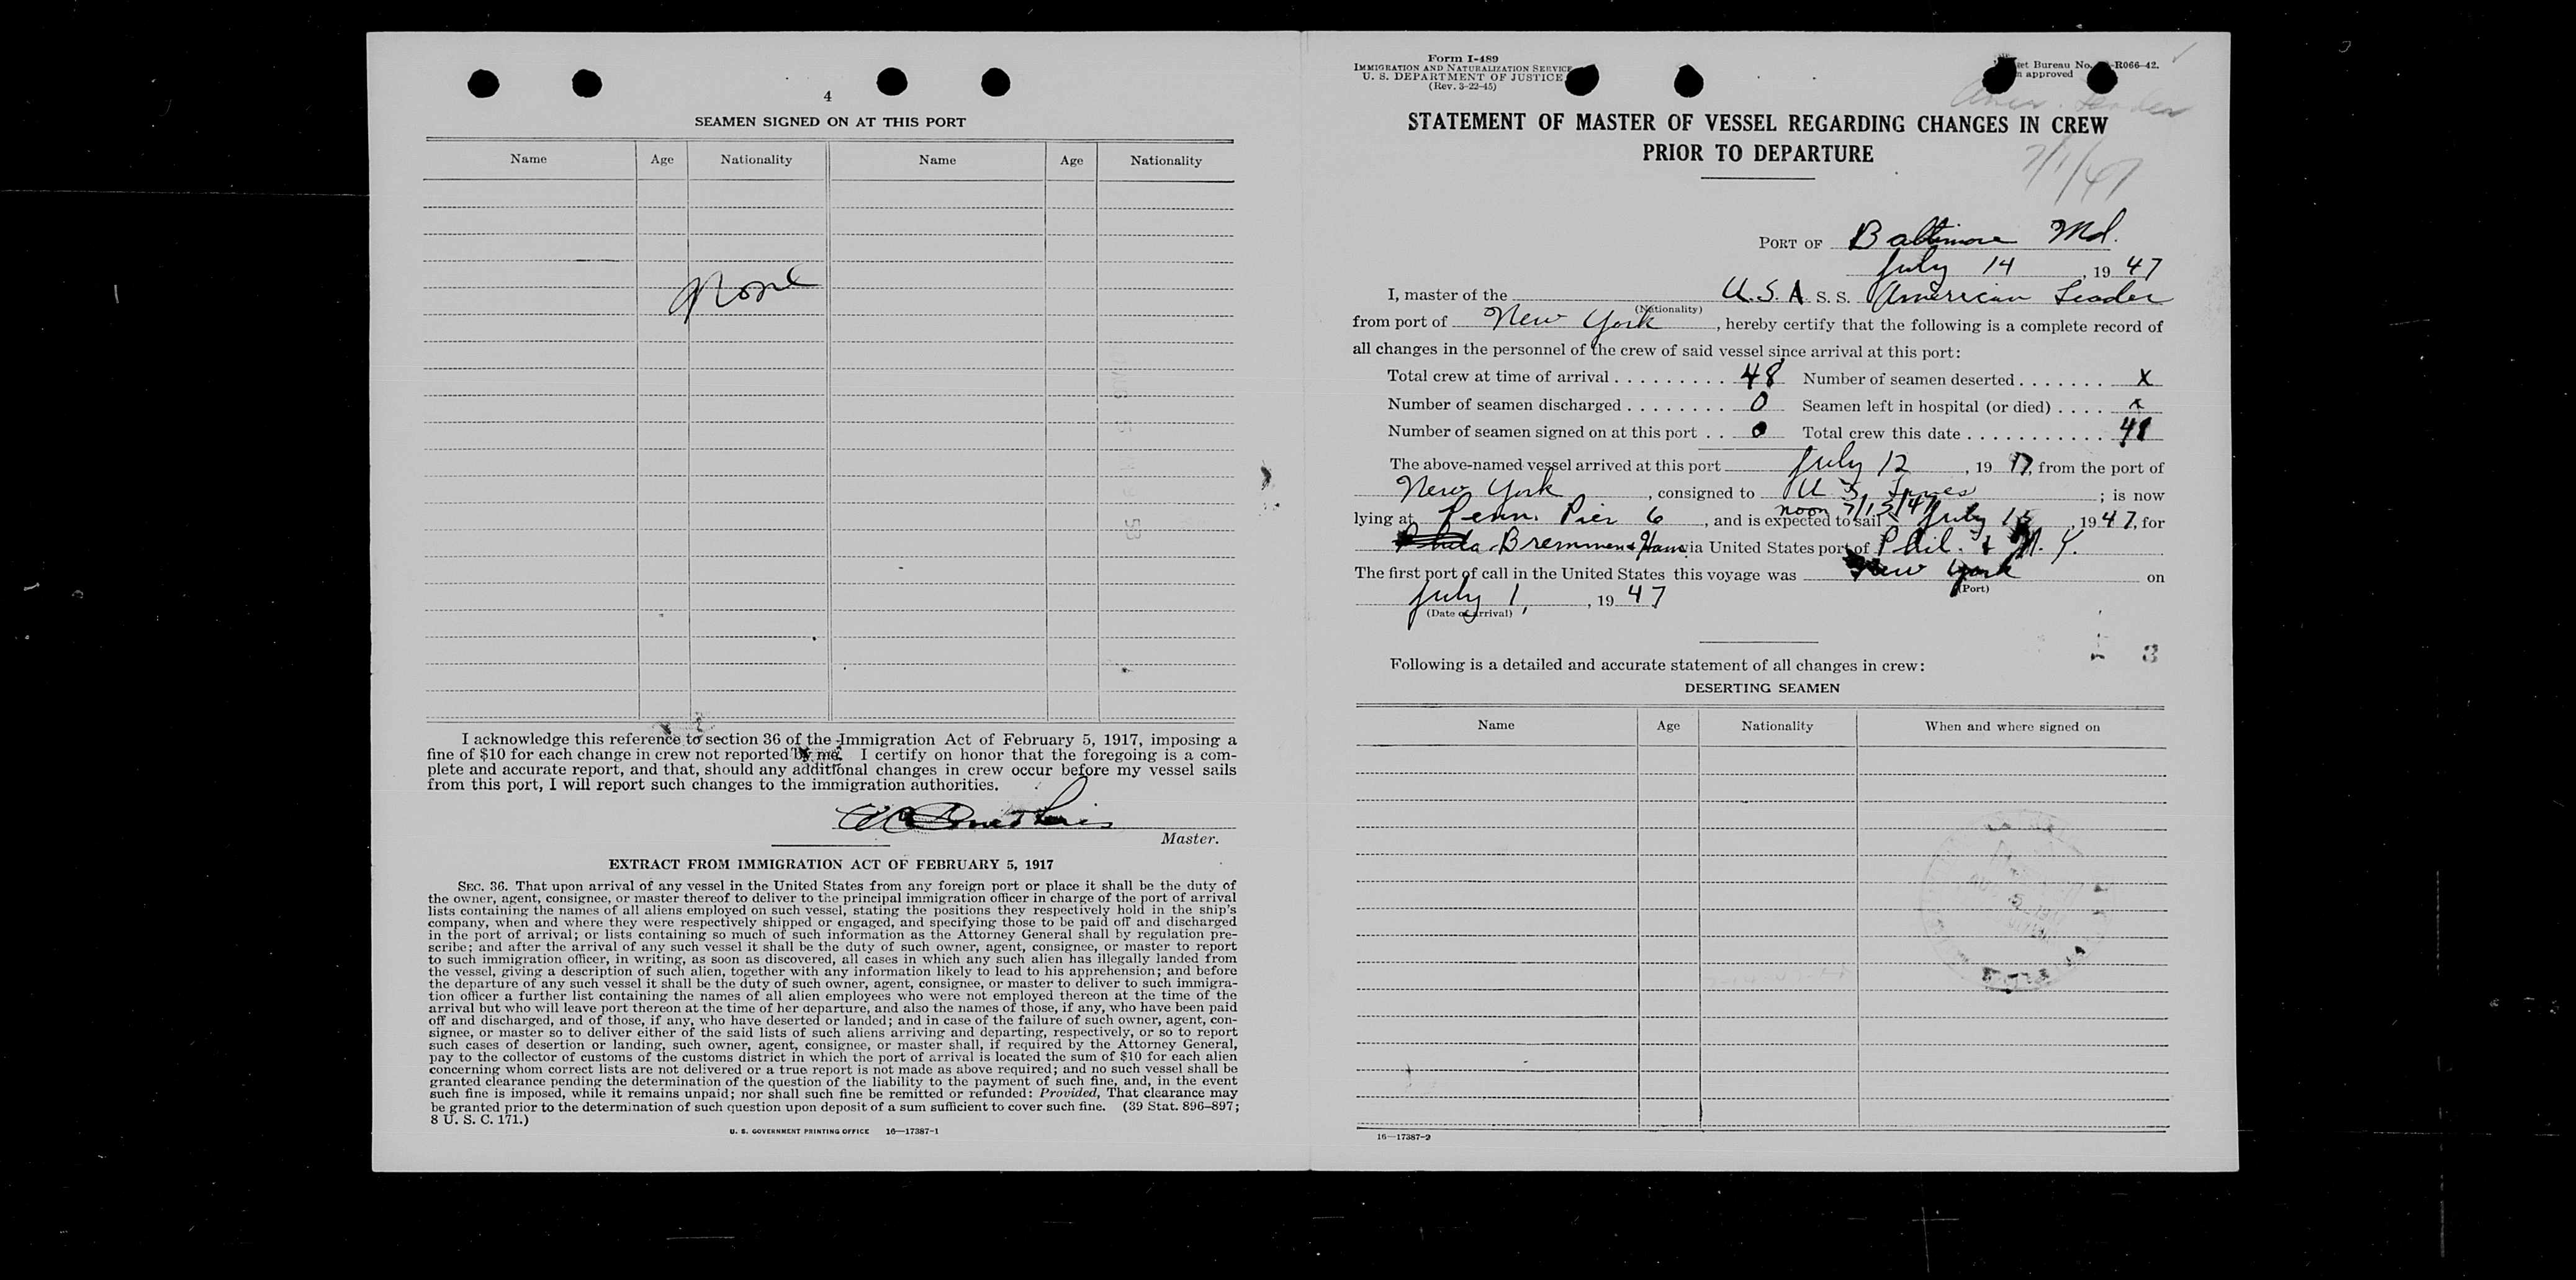 4
SEAMEN SIGNED ON AT THIS PORT
Name Age Nationality Name Age Nationality
None
I acknowledge this reference to section 36 of the Immigration Act of February 5, 1917, imposing a
fine of $10 for each change in crew not reported by me. I certify on honor that the foregoing is a com-
plete and accurate report, and that, should any additional changes in crew occur before my vessel sails
from this port, I will report such changes to the immigration authorities.
Master.
EXTRACT FROM IMMIGRATION ACT OF FEBRUARY 5, 1917
SEC. 36. That upon arrival of any vessel in the United States from any foreign port or place it shall be the duty of
the owner, agent, consignee, or master thereof to deliver to the principal immigration officer in charge of the port of arrival
lists containing the names of all aliens employed on such vessel, stating the positions they respectively hold in the ship's
company, when and where they were respectively shipped or engaged, and specifying those to be paid off and discharged
in the port of arrival; or lists containing so much of such information as the Attorney General shall by regulation pre-
scribe; and after the arrival of any such vessel it shall be the duty of such owner, agent, consignee, or master to report
to such immigration officer, in writing, as soon as discovered, all cases in which any such alien has illegally landed from
the vessel, giving a description of such alien, together with any information likely to lead to his apprehension; and before
the departure of any such vessel it shall be the duty of such owner, agent, consignee, or master to deliver to such immigra-
tion officer a further list containing the names of all alien employees who were not employed thereon at the time of the
arrival but who will leave port thereon at the time of her departure, and also the names of those, if any, who have been paid
off and discharged, and of those, if any, who have deserted or landed; and in case of the failure of such owner, agent, con-
signee, or master so to deliver either of the said lists of such aliens arriving and departing, respectively, or so to report
such cases of desertion or landing, such owner, agent, consignee, or master shall, if required by the Attorney General,
pay to the collector of customs of the customs district in which the port of arrival is located the sum of $10 for each alien
concerning whom correct lists are not delivered or a true report is not made as above required; and no such vessel shall be
granted clearance pending the determination of the question of the liability to the payment of such fine, and, in the event
such fine is imposed, while it remains unpaid; nor shall such fine be remitted or refunded: Provided, That clearance may
be granted prior to the determination of such question upon deposit of a sum sufficient to cover such fine. (39 Stat. 896–897;
8 U. S. C. 171.)
U. S. GOVERNMENT PRINTING OFFICE 16—17387-1
Form I-489
IMMIGRATION AND NATURALIZATION SERVICE
U. S. DEPARTMENT OF JUSTICE
(Rev. 3-22-45)
Bureau No. -R066-42.
approved
Amer. Leader
7/1/47
STATEMENT OF MASTER OF VESSEL REGARDING CHANGES IN CREW
PRIOR TO DEPARTURE
PORT OF Baltimore Md.
July 14, 1947
I, master of the U.S.A. S. S. American Leader
(Nationality)
from port of New York, hereby certify that the following is a complete record of
all changes in the personnel of the crew of said vessel since arrival at this port:
Total crew at time of arrival 48 Number of seamen deserted X
Number of seamen discharged 0 Seamen left in hospital (or died) x
Number of seamen signed on at this port 0 Total crew this date 48
The above-named vessel arrived at this port July 12, 1947, from the port of
New York, consigned to U S Lines; is now
noon 7/15/47
lying at Penn. Pier 6, and is expected to sail July 15, 1947, for
Phila Bremmen & Ham via United States port of Phil. & N. Y.
The first port of call in the United States this voyage was New York on
(Port)
July 1, 1947
(Date of arrival)
3
Following is a detailed and accurate statement of all changes in crew:
DESERTING SEAMEN
Name Age Nationality When and where signed on
16—17387-2